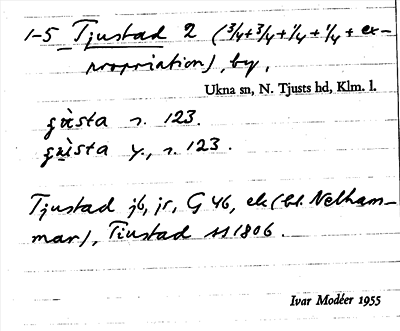 1-5 Tjustad 2 (3/4+3/4+1/4+1/4+ex-
propriation), by,
Ukna sn, N. Tjusts hd, Klm. l.
s. 123.
y., s. 123.
Tjustad jb, jr, G 46, ek (bl. Nelham-
mar), Tiustad 1806.
Ivar Modéer 1955